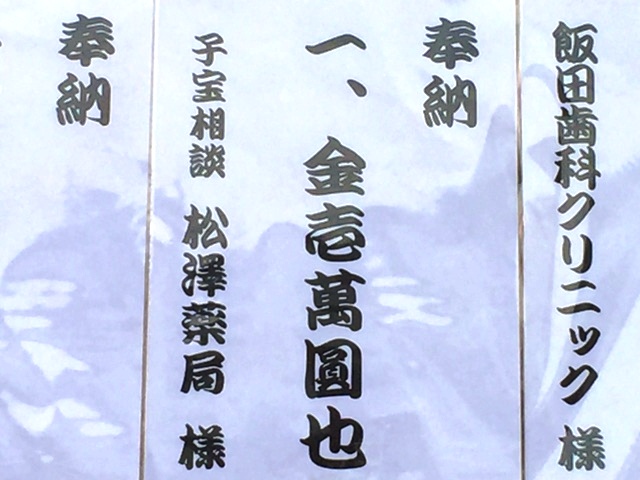 飯田歯科クリニック 様
奉納
一、金壱萬圓也
子宝相談 松澤薬局 様
奉納